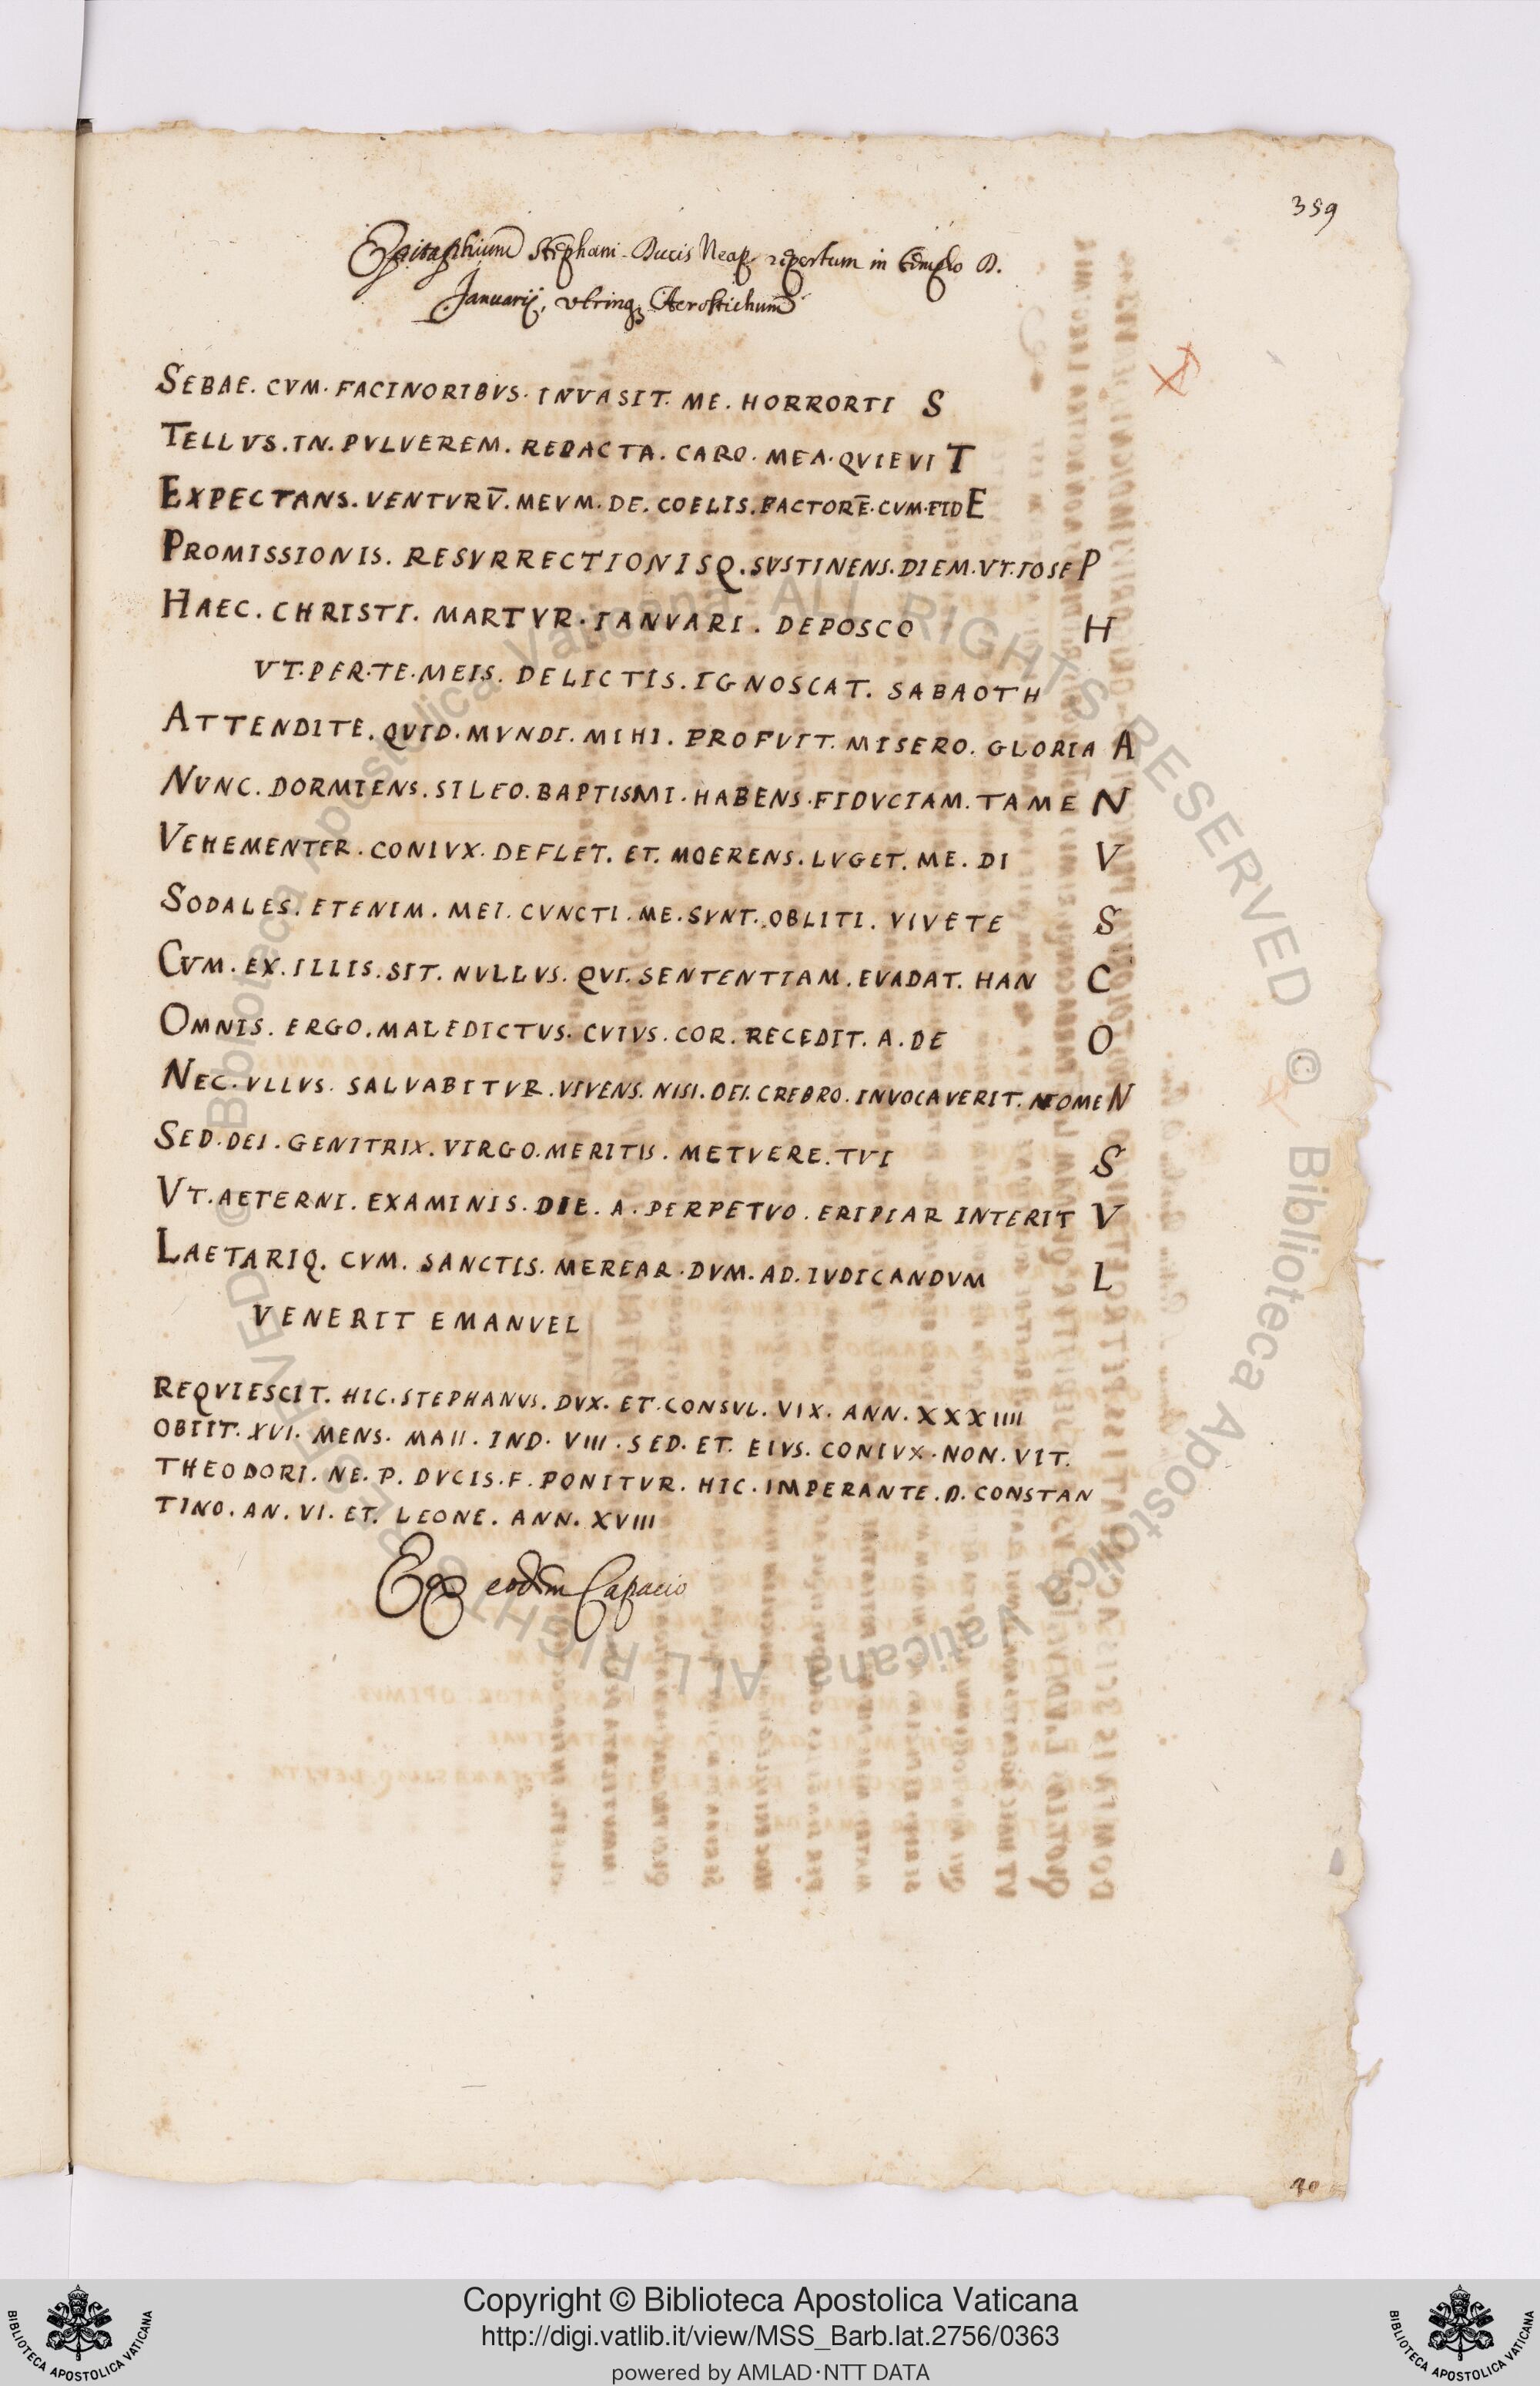 359
Epitaphium Stephani Ducis Neap. repertum in templo D.
Januarij, utrinq; Acrostichum
SEBAE. CVM. FACINORIBVS. INVASIT. ME. HORRORTI S
TELLVS. IN. PVLVEREM. REDACTA. CARO. MEA. QVIEVI T
EXPECTANS. VENTVRV̄. MEVM. DE. COELIS. FACTORĒ. CVM. FID E
PROMISSIONIS. RESVRRECTIONISQ. SVSTINENS. DIEM. VT. IOSE P
HAEC. CHRISTI. MARTVR. IANVARI. DEPOSCO H
VT. PER. TE. MEIS. DELICTIS. IGNOSCAT. SABAOTH
ATTENDITE. QVID. MVNDI. MIHI. PROFVIT. MISERO. GLORIA A
NVNC. DORMIENS. SILEO. BAPTISMI. HABENS. FIDVCIAM. TAME N
VEHEMENTER. CONIVX. DEFLET. ET. MOERENS. LVGET. ME. DI V
SODALES. ETENIM. MEI. CVNCTI. ME. SVNT. OBLITI. VIVETE S
CVM. EX. ILLIS. SIT. NVLLVS. QVI. SENTENTIAM. EVADAT. HAN C
OMNIS. ERGO. MALEDICTVS. CVIVS. COR. RECEDIT. A. DE O
NEC. VLLVS. SALVABITVR. VIVENS. NISI. DEI. CREBRO. INVOCAVERIT. NOME N
SED. DEI. GENITRIX. VIRGO. MERITIS. METVERE. TVI S
VT. AETERNI. EXAMINIS. DIE. A. PERPETVO. ERIPIAR INTERIT V
LAETARIQ. CVM. SANCTIS. MEREAR. DVM. AD. IVDICANDVM L
VENERIT EMANVEL
REQVIESCIT. HIC. STEPHANVS. DVX. ET. CONSVL. VIX. ANN. XXXIIII
OBIIT. XVI. MENS. MAII. IND. VIII. SED. ET. EIVS. CONIVX. NON. VIT.
THEODORI. NE. P. DVCIS. F. PONITVR. HIC. IMPERANTE. D. CONSTAN
TINO. AN. VI. ET. LEONE. ANN. XVIII
Ex eodem Capacio
40
Copyright © Biblioteca Apostolica Vaticana
http://digi.vatlib.it/view/MSS_Barb.lat.2756/0363
powered by AMLAD·NTT DATA
BIBLIOTECA APOSTOLICA VATICANA
BIBLIOTECA APOSTOLICA VATICANA
© Biblioteca Apostolica Vaticana ALL RIGHTS RESERVED
© Biblioteca Apostolica Vaticana ALL RIGHTS RESERVED